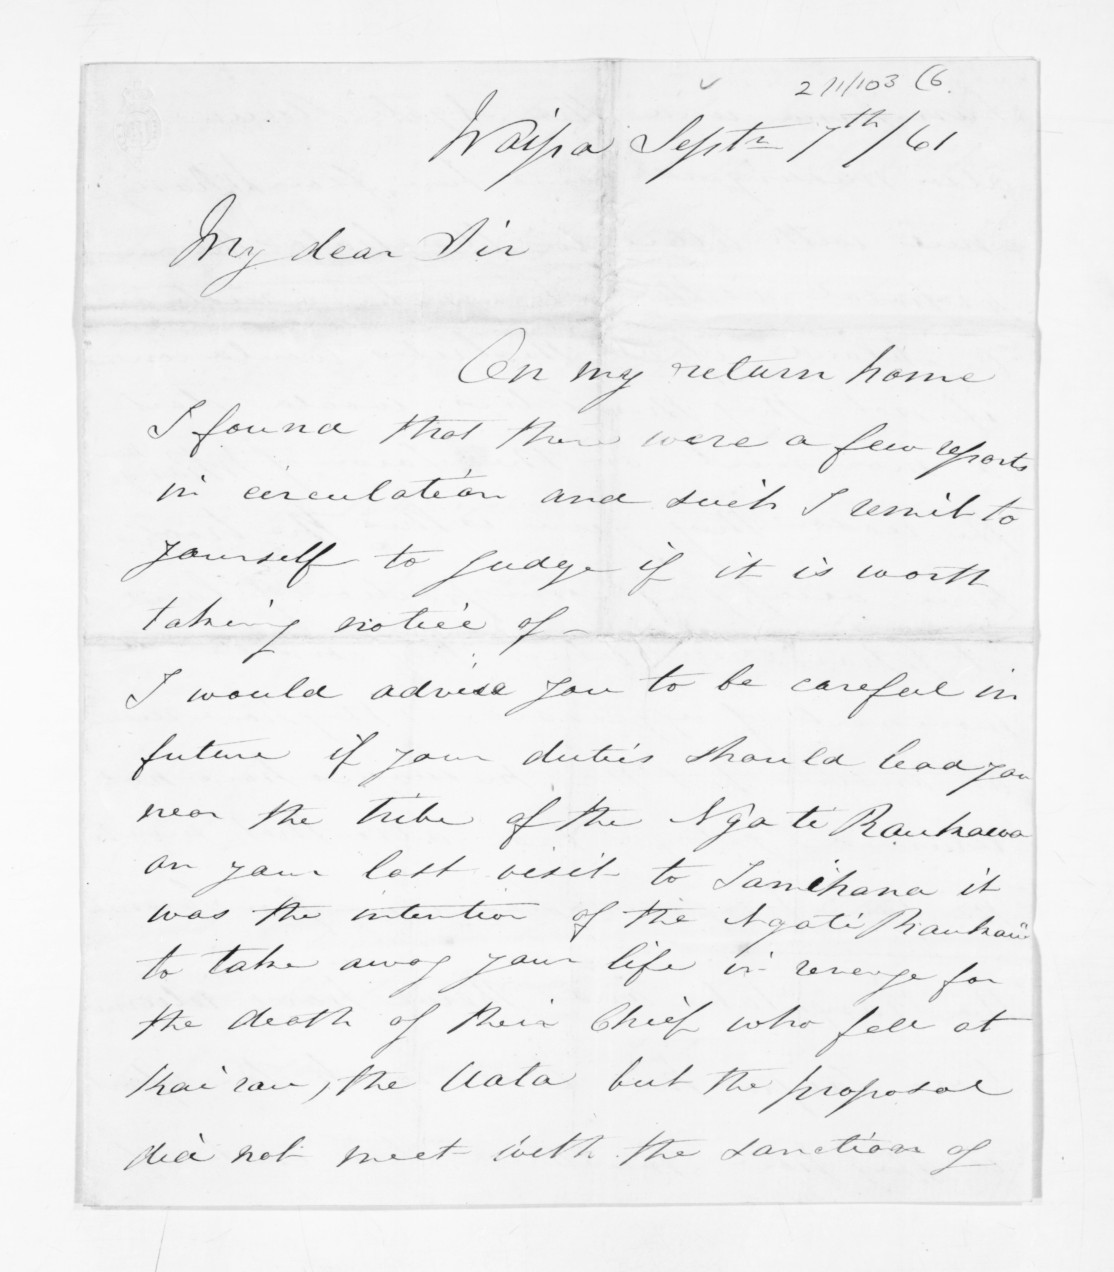 211/103 (6.
Waipa Septr 7th/61
My dear Sir
On my return home
I found that there were a few reports
in circulation and such I remit to
yourself to judge if it is worth
taking notice of –
I would advise you to be careful in
future if your duties should lead you
near the tribe of the Ngati Raukawa
on your last visit to Tamihana it
was the intention of the Ngati Raukawa
to take away your life in revenge for
the death of their Chief who fell at
Kairau, the Uata but the proposal
did not meet with the sanction of